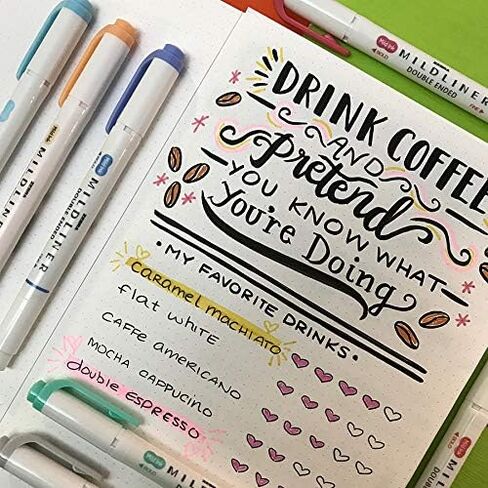 DRINK COFFEE
AND
Pretend
YOU KNOW WHAT
You're Doing
• MY FAVORITE DRINKS •
caramel machiato
flat white
CAFFE AMERICANO
MOCHA CAPPUCINO
double ESPRESSO
MILDLINER
DOUBLE ENDED
BOLD
FINE
MILDLINER
MILDLINER
DOUBLE ENDED
MILDLINER